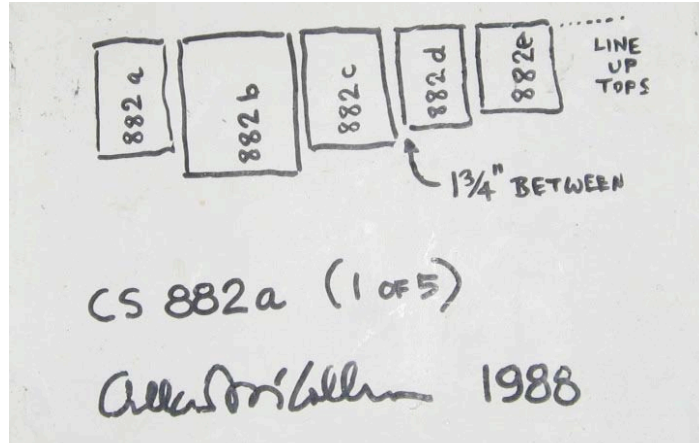 882a 882b 882c 882d 882e
LINE
UP
TOPS
1 3/4" BETWEEN
CS 882a (1 OF 5)
Allan McCollum 1988